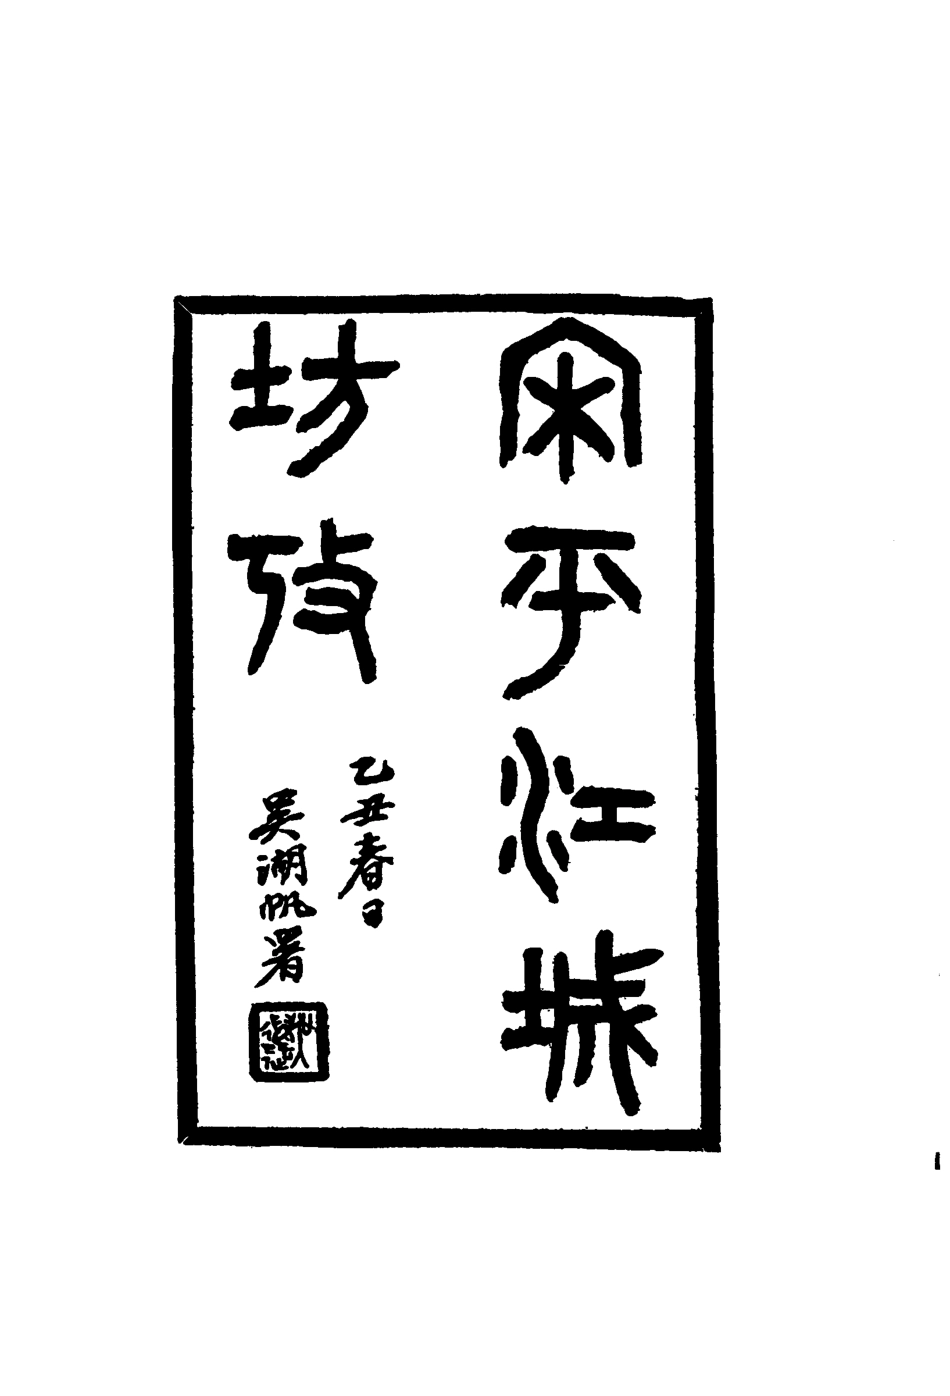 宋平江城
坊攷
乙丑春日
吳湖帆署